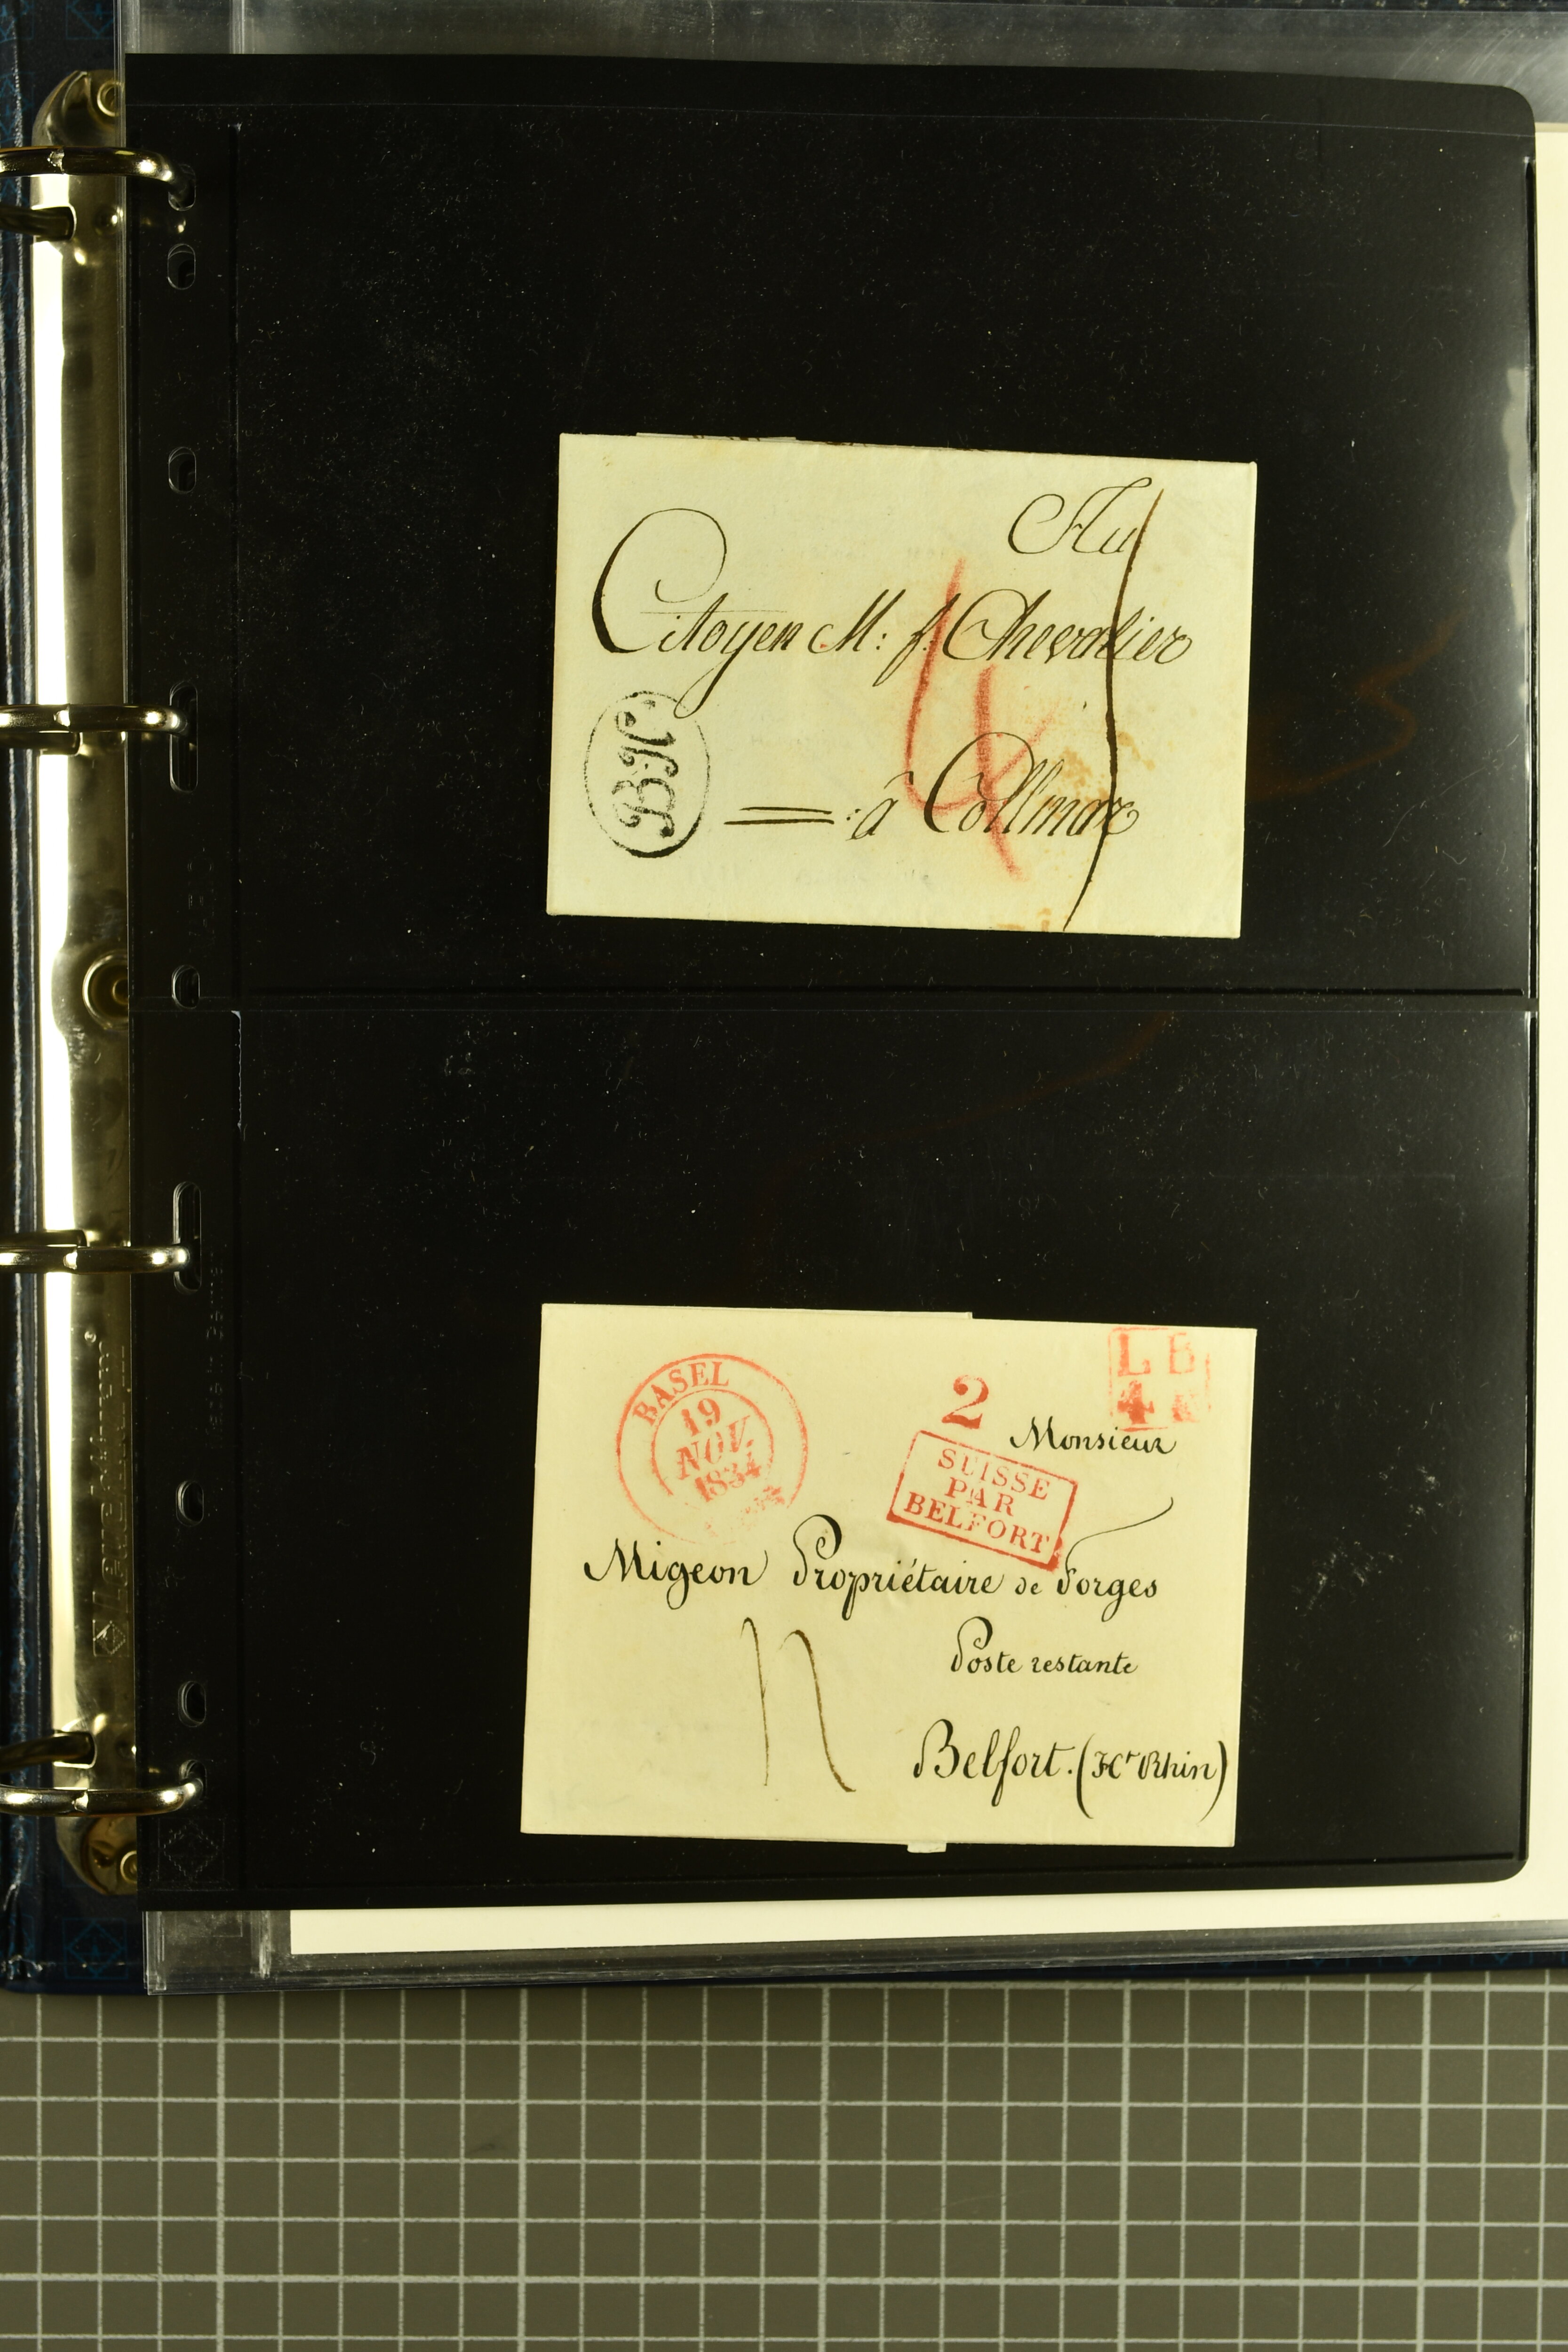 Au
Citoyen M: f. Chevalier
BK
=:â Collmar
BASEL
19
NOV.
1834
2
L B
4 K
Monsieur
SUISSE
PAR
BELFORT
Migeon Propriétaire de Forges
Poste restante
Belfort. (Ht Rhin)